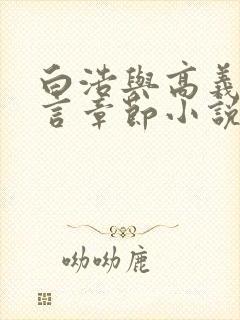 白浩與高義
言章節小說
呦呦鹿